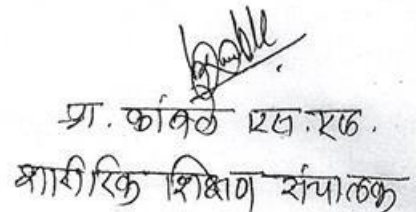 प्रा. कांबळे एस. एफ.
शारीरिक शिक्षण संचालक